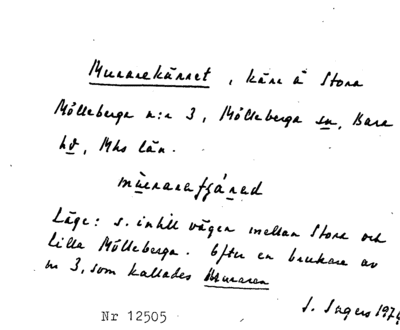 Murarekärret, kärr å Stora
Mölleberga n:r 3, Mölleberga sn, Bara
hd, Mhs län.
Läge: s. intill vägen mellan Stora och
Lilla Mölleberga. Efter en brukare av
nr 3, som kallades Muraren
S. Ingers 1976
Nr 12505